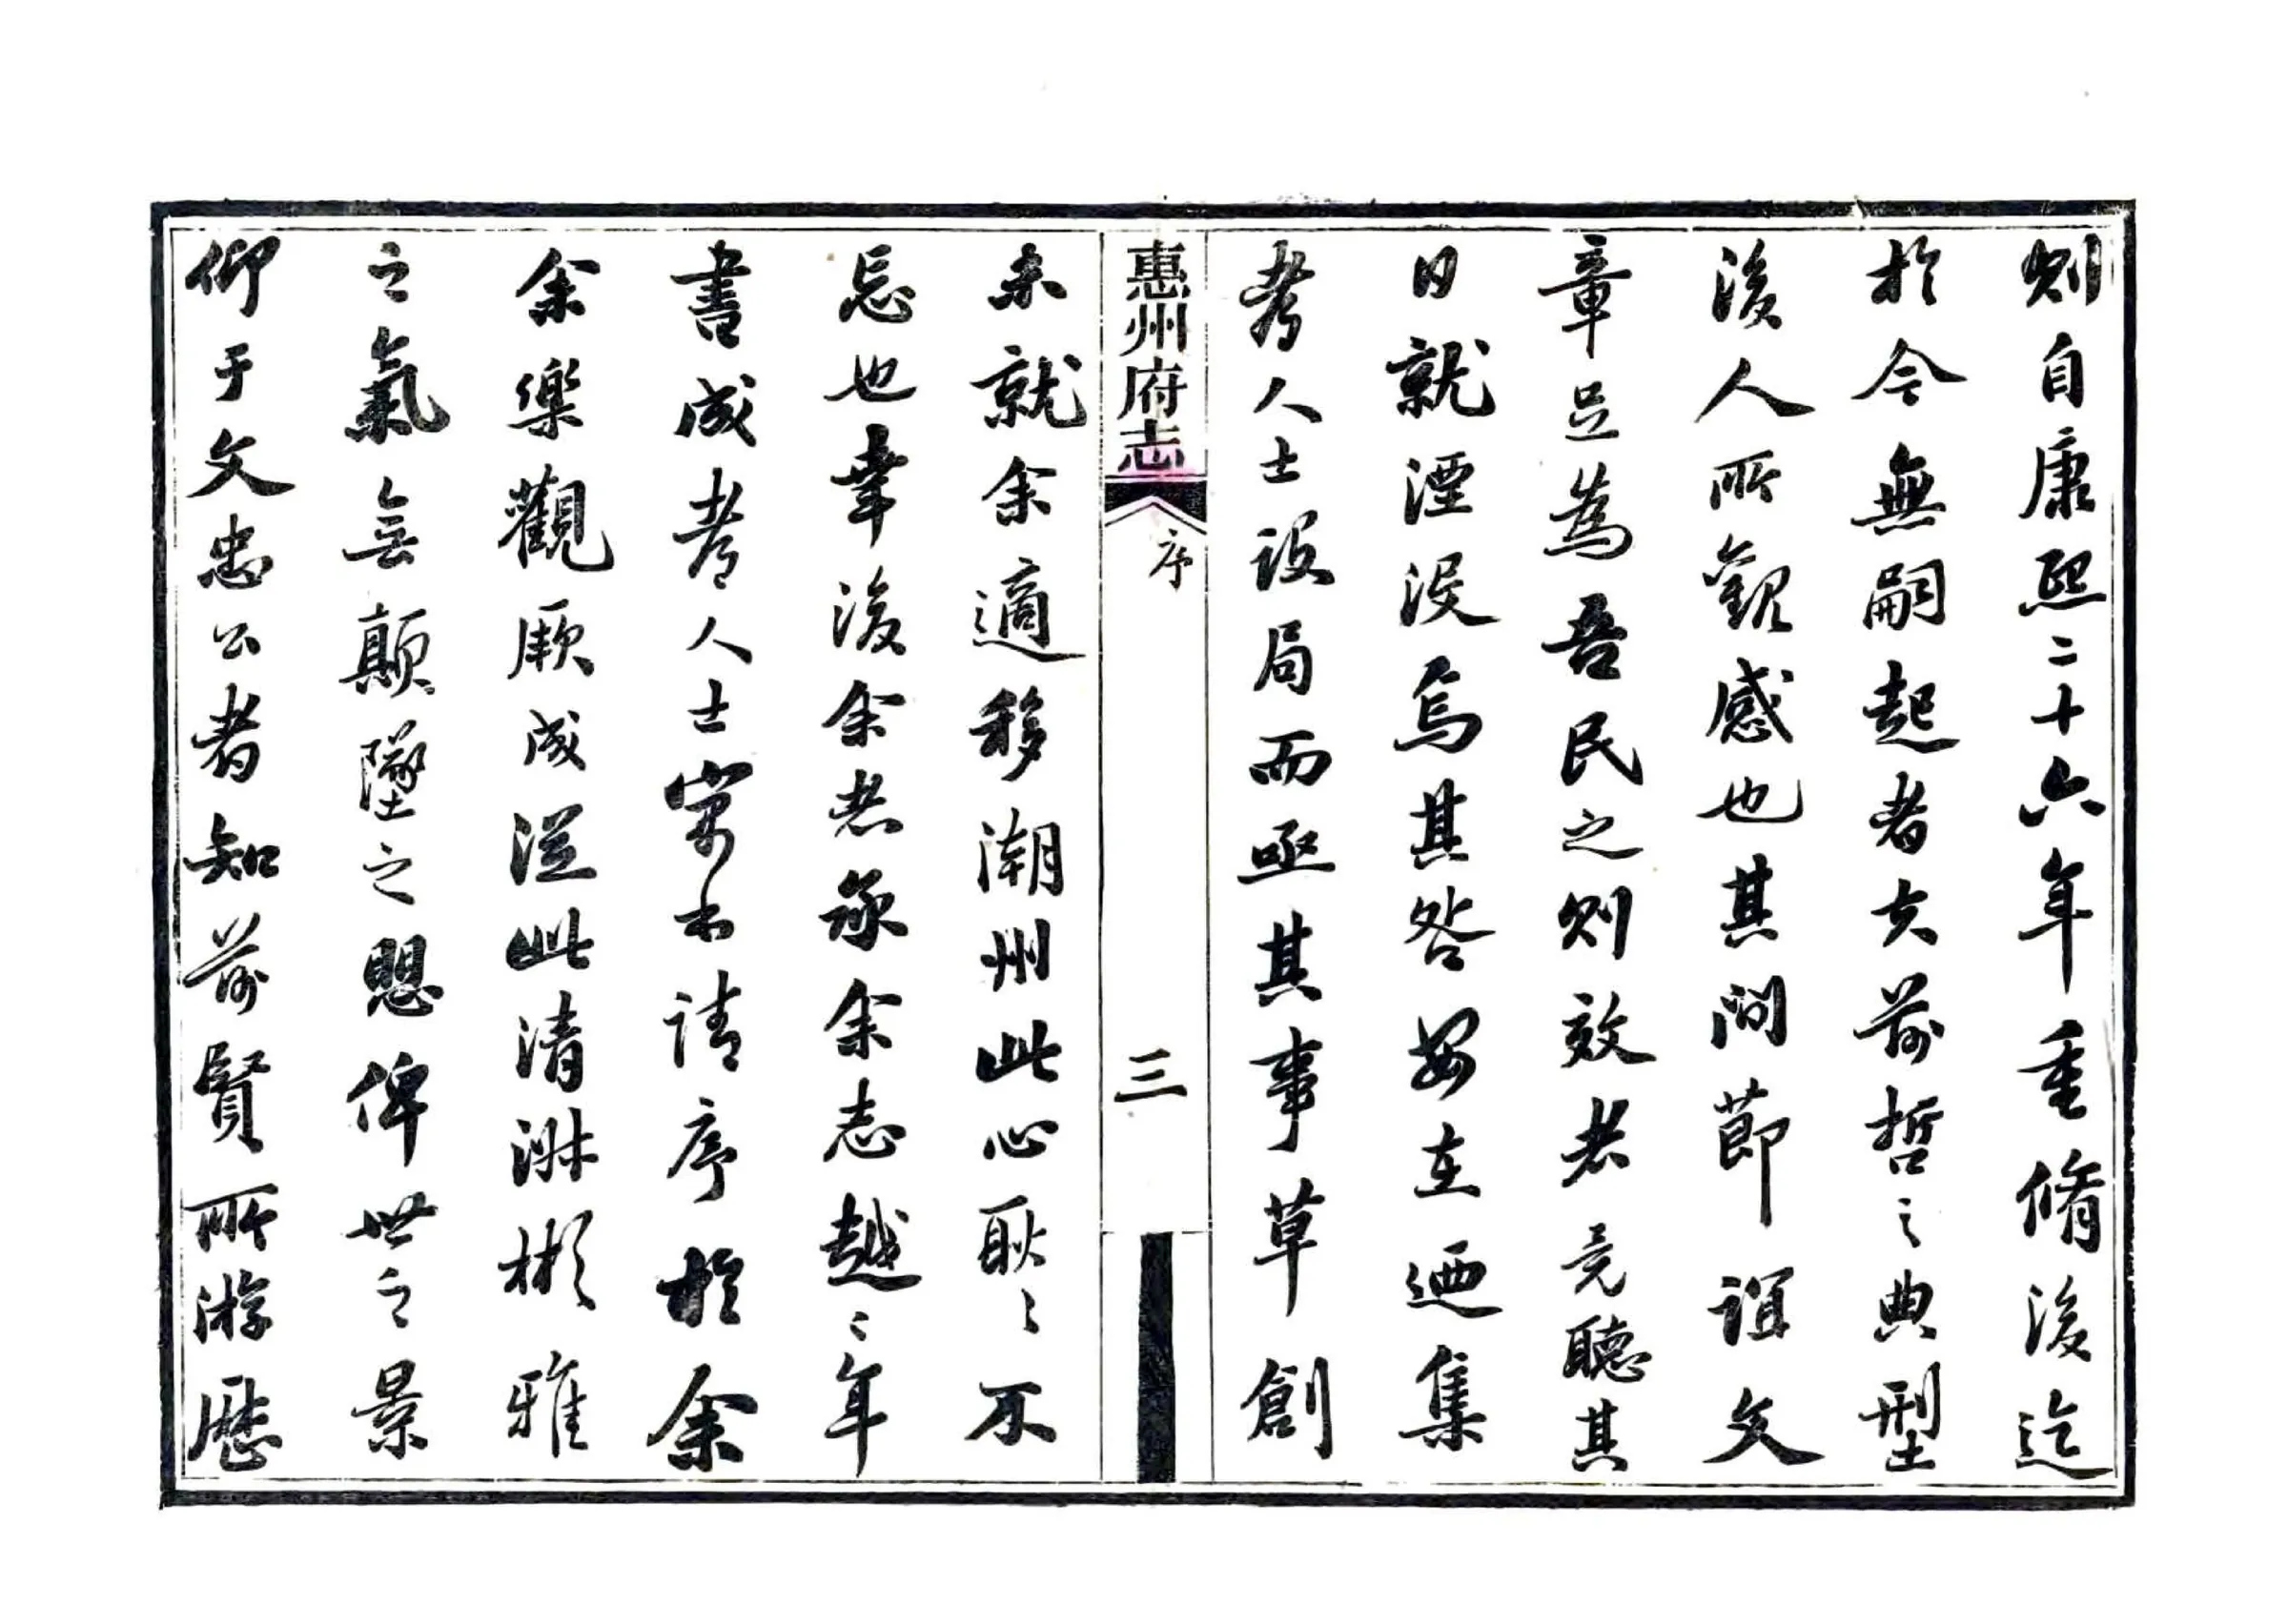 則自康熙二十六年重脩後迄
於今無嗣起者夫前哲之典型
後人所觀感也其間節誼文
章足為吾民之則效者竟聽其
日就湮没焉其咎安在迺集
考人士設局而亟其事草創
惠州府志
序
三
未就余適移潮州此心耿〻不
忘也幸後余者承余志越〻年
書成考人士寓書請序於余
余樂觀厥成從此清淋彬雅
之氣無顛墜之思俾世之景
仰于文忠公者知前賢所游歷